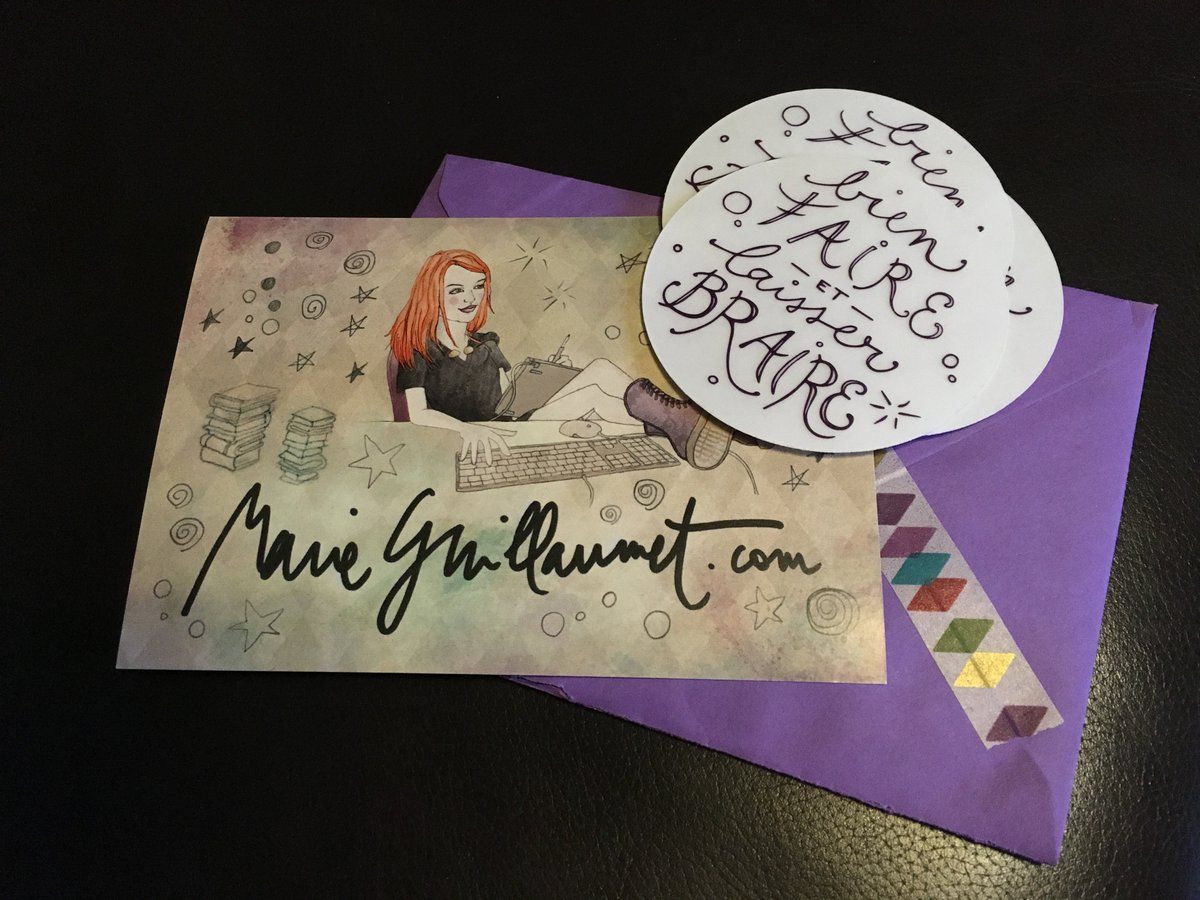 bien
FAIRE
- ET -
laisser
BRAIRE
bien
Marie Guillaumet.com